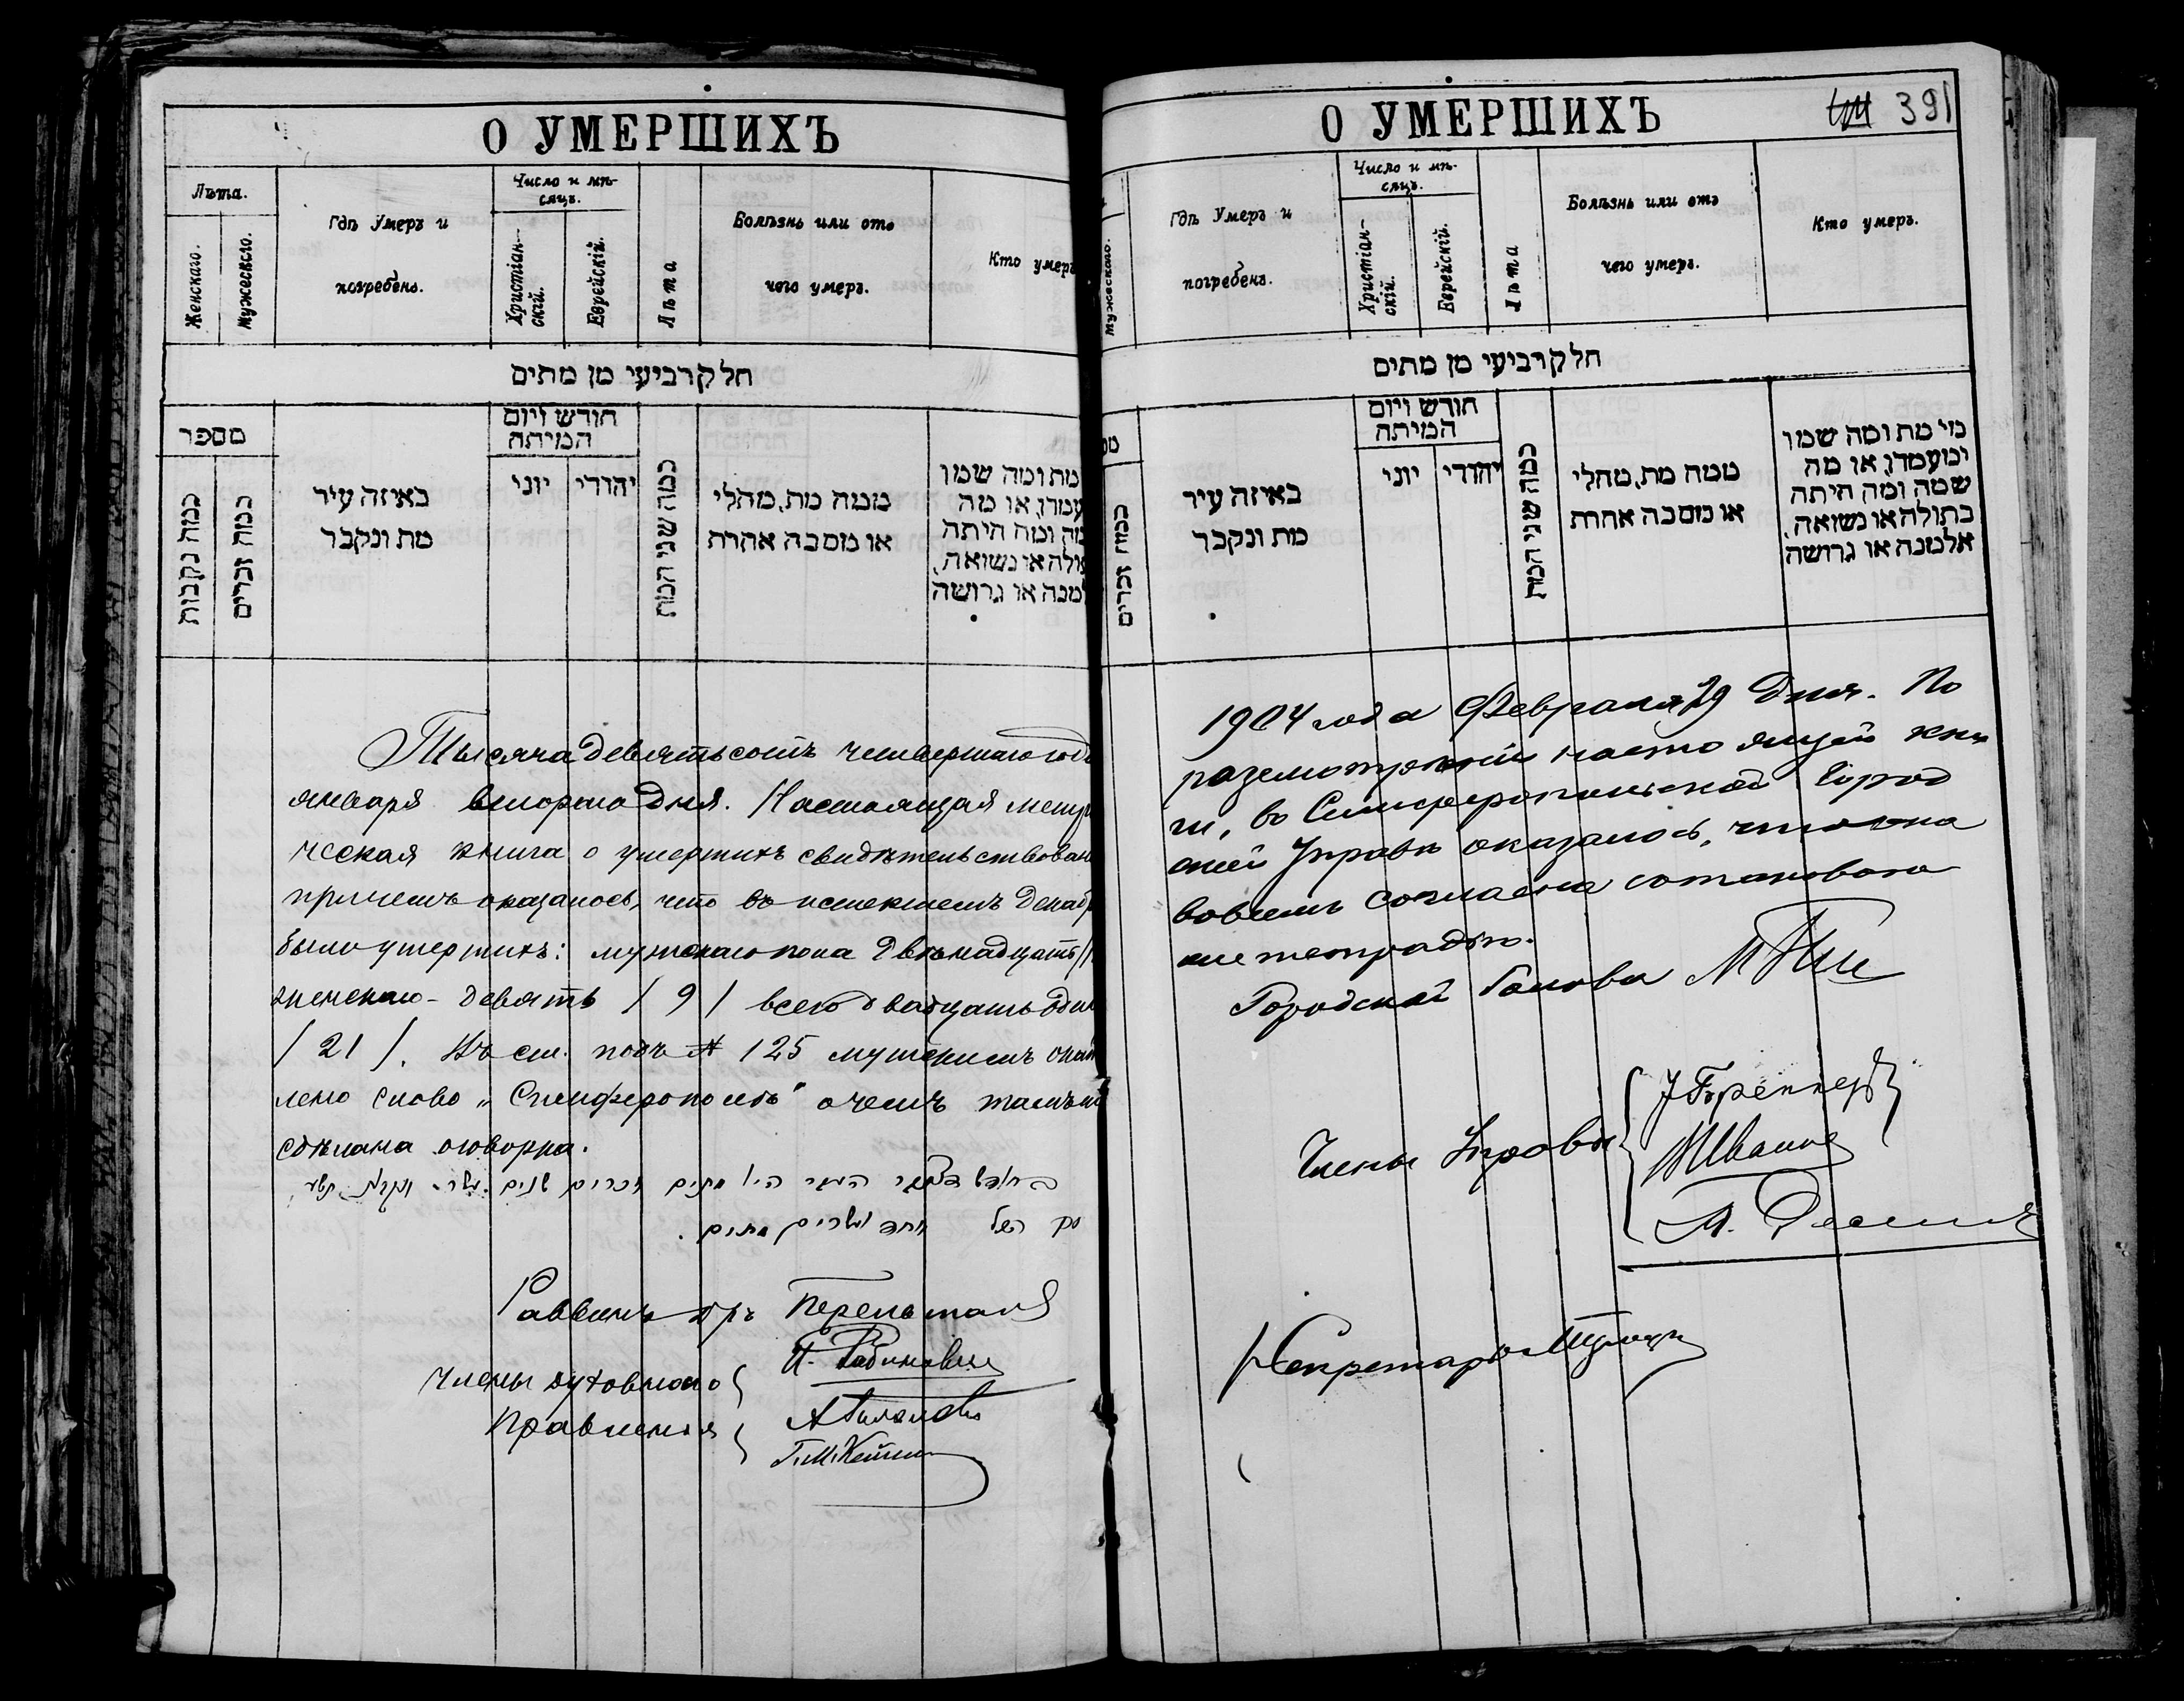 О УМЕРШИХЪ
Лѣта.
Женскаго.
Мужескаго.
Гдѣ Умеръ и
погребенъ.
Число и мѣ-
сяцъ.
Христіан-
скій.
Еврейскій.
Лѣта
Болѣзнь или отъ
чего умеръ.
Кто умеръ
חלק רביעי מן מתים
מספר
כמה נקבות
כמה זכרים
באיזה עיר
מת ונקבר
חודש ויום
המיתה
יוני
יהודי
כמה שני המת
ממה מת, מחלי
או מסבה אחרת
מת ומה שמו
עמדו, או מה
מה ומה היתה
תולה או נשואה,
למנה או גרושה
Тысяча девятьсотъ четвертаго год
января второго дня. Настоящая метри
ческая книга о умершихъ свидѣтельствован
причемъ оказалось, что въ истекшемъ Декаб
было умершихъ: мужскаго пола двѣнадцать
женскаго - девять / 9 / всего двадцать один
/ 21 /. Въ ст. подъ № 125 мужскимъ
лено слово „Симферополь" о чемъ тамъ
сдѣлана оговорка.
מתים זכרים שנים עשר
אחד ועשרים מתים.
Раввинъ Д-ръ Перельманъ
Члены духовнаго
Правленія
И. Рабиновичъ
О УМЕРШИХЪ
391
Мужескаго.
Гдѣ Умеръ и
погребенъ.
Число и мѣ-
сяцъ.
Христіан-
скій.
Еврейскій.
Лѣта
Болѣзнь или отъ
чего умеръ.
Кто умеръ.
חלק רביעי מן מתים
כמה זכרים
באיזה עיר
מת ונקבר
חודש ויום
המיתה
יוני
יהודי
כמה שני המת
ממה מת, מחלי
או מסבה אחרת
מי מת ומה שמו
ומעמדו, או מה
שמה ומה היתה
בתולה או נשואה,
אלמנה או גרושה
1904 года Февраля 29 Дня. По
разсмотрѣніи настоящей кни
ги, въ Симферопольской Город
ской Управѣ оказалось, что она
вовсемъ согласна
тетрадью.
Городской Голова
Члены Управы
Секретарь